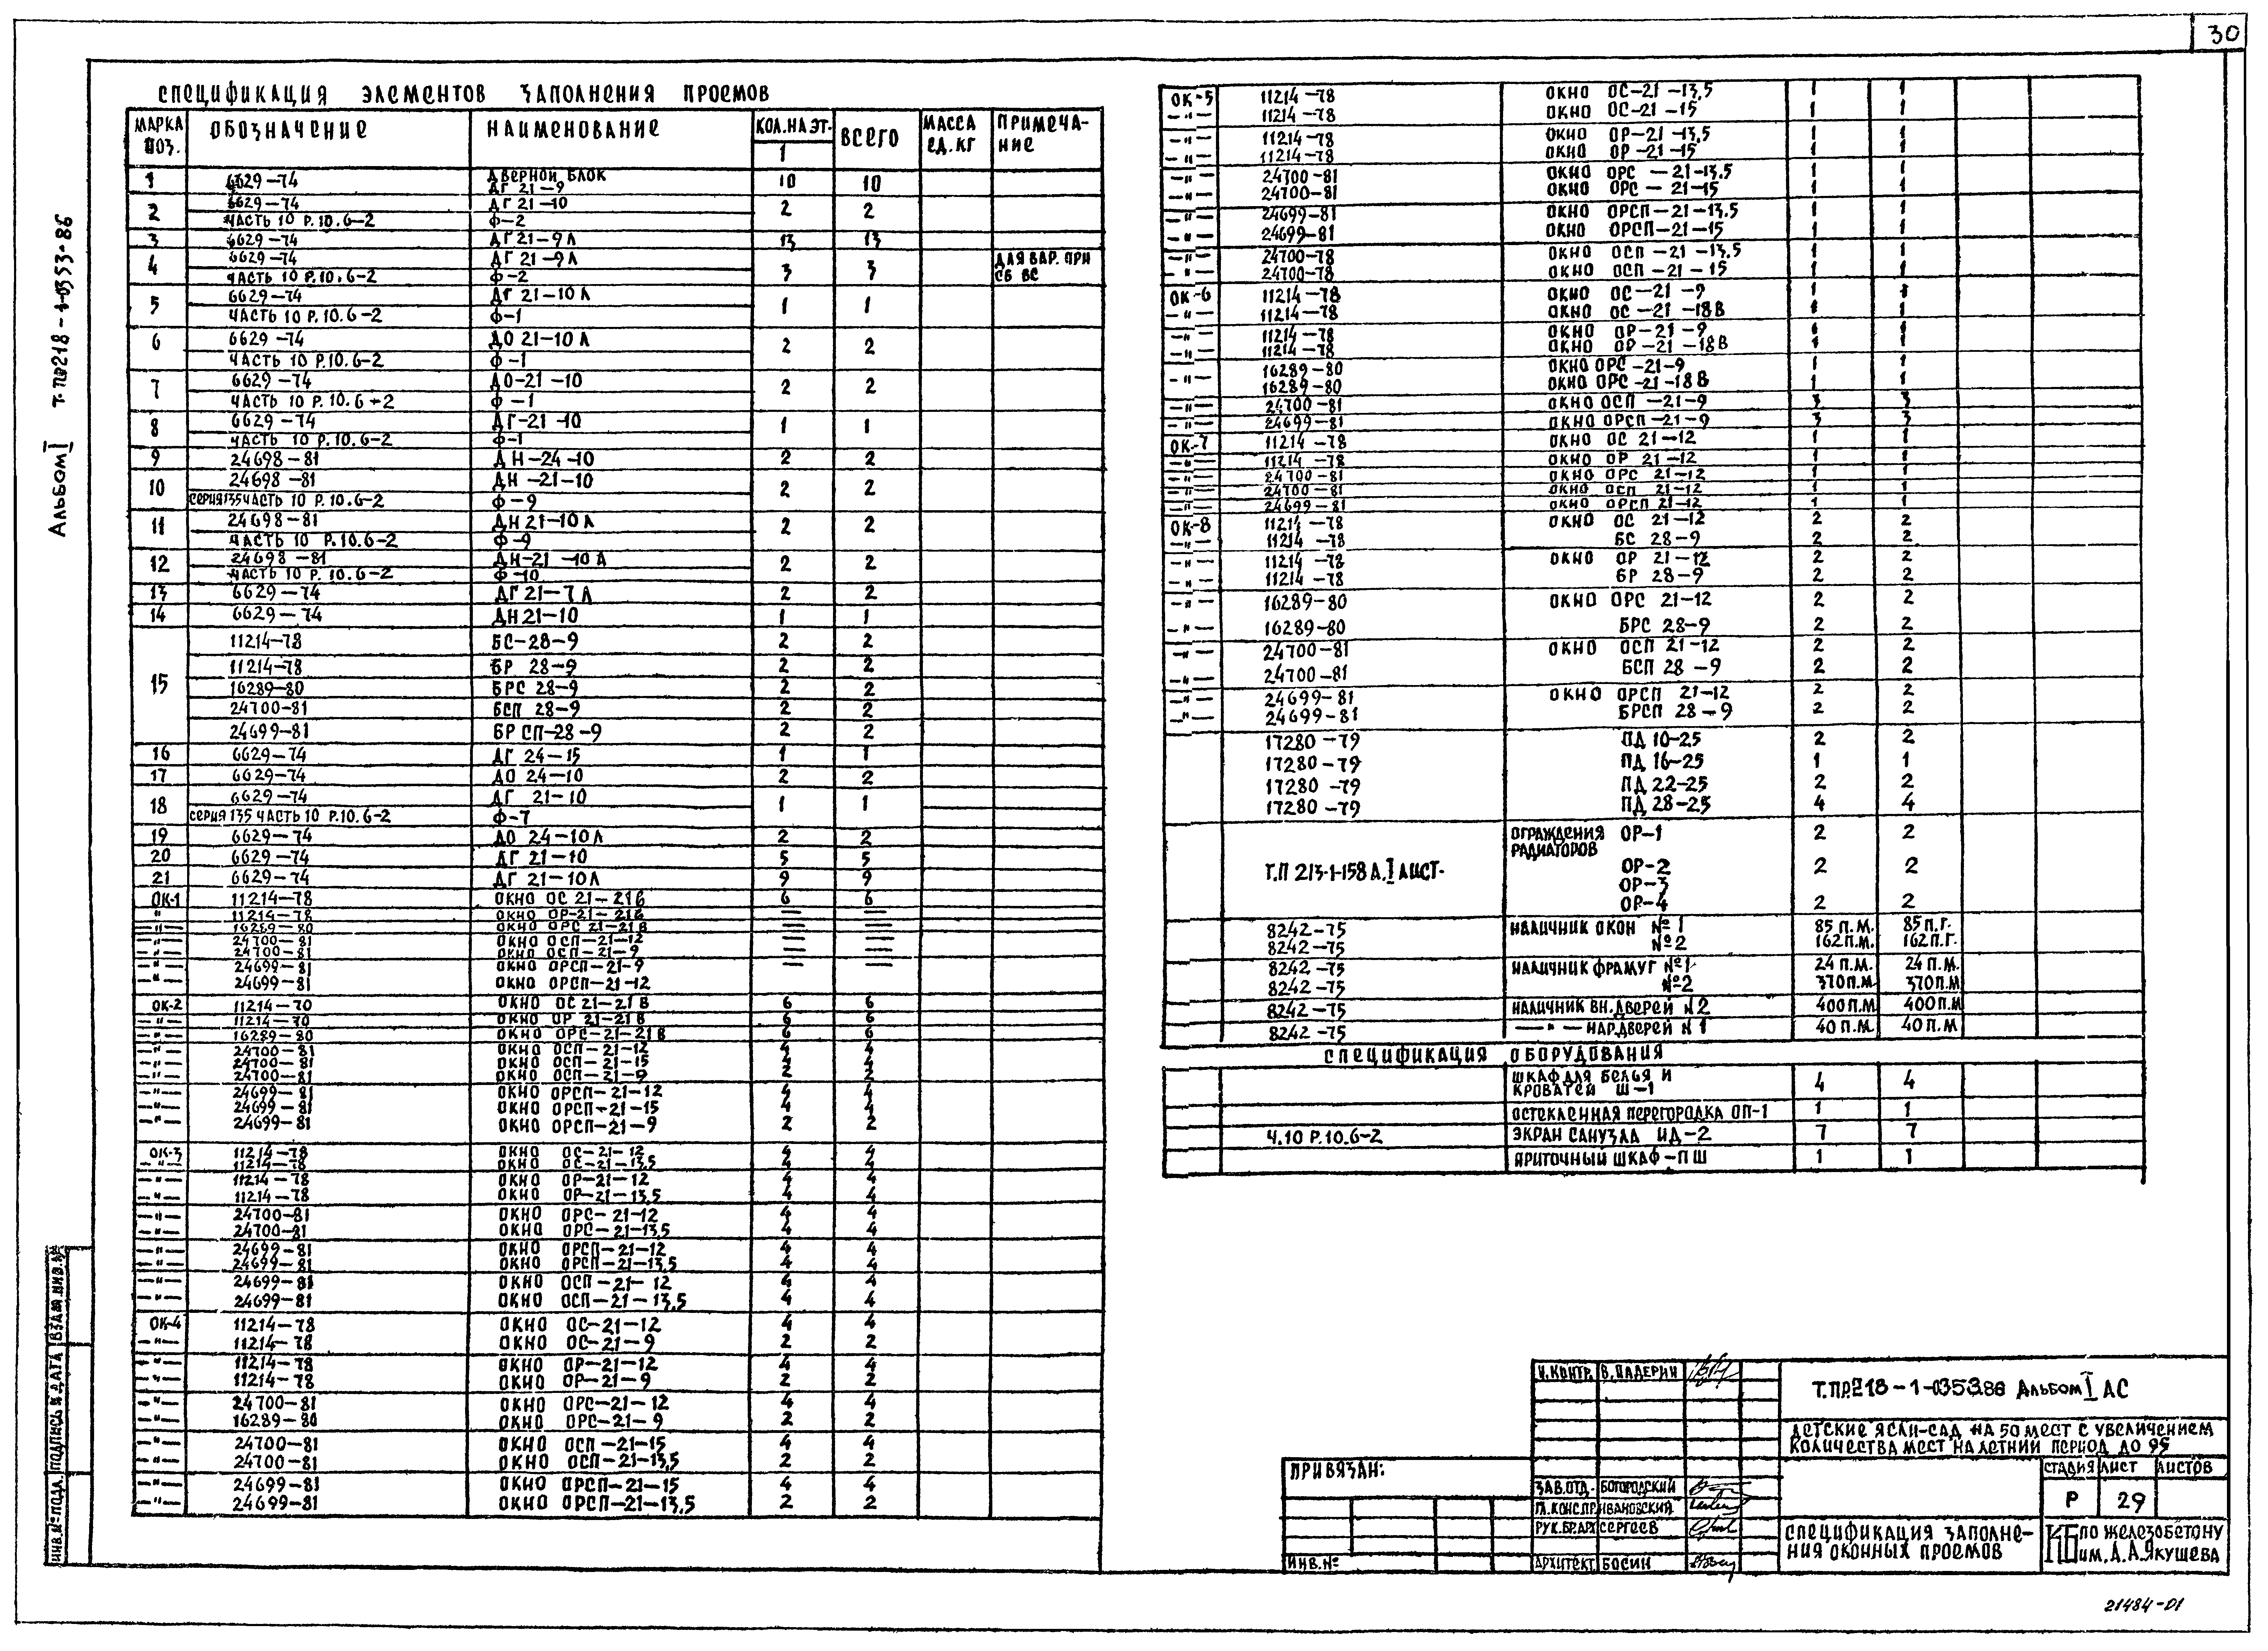 30
Альбом I Т.ПР 218-1-0353.86
СПЕЦИФИКАЦИЯ ЭЛЕМЕНТОВ ЗАПОЛНЕНИЯ ПРОЕМОВ
МАРКА ПОЗ. ОБОЗНАЧЕНИЕ НАИМЕНОВАНИЕ КОЛ.НА ЭТ. 1 ВСЕГО МАССА ЕД.КГ ПРИМЕЧА-НИЕ
1 6629-74 ДВЕРНОЙ БЛОК ДГ 21-9 10 10
2 6629-74 ДГ 21-10 2 2
ЧАСТЬ 10 Р.10.6-2 Ф-2
3 6629-74 ДГ 21-9Л 13 13
4 6629-74 ДГ 21-9Л 3 3 ДЛЯ ВАР. ПРИ СБ ВС
ЧАСТЬ 10 Р.10.6-2 Ф-2
5 6629-74 ДГ 21-10Л 1 1
ЧАСТЬ 10 Р.10.6-2 Ф-1
6 6629-74 ДО 21-10Л 2 2
ЧАСТЬ 10 Р.10.6-2 Ф-1
7 6629-74 ДО-21-10 2 2
ЧАСТЬ 10 Р.10.6-2 Ф-1
8 6629-74 ДГ-21-10 1 1
ЧАСТЬ 10 Р.10.6-2 Ф-1
9 24698-81 ДН-24-10 2 2
10 24698-81 ДН-21-10 2 2
СЕРИЯ 135 ЧАСТЬ 10 Р.10.6-2 Ф-9
11 24698-81 ДН 21-10Л 2 2
ЧАСТЬ 10 Р.10.6-2 Ф-9
12 24698-81 ДН-21-10Л 2 2
ЧАСТЬ 10 Р.10.6-2 Ф-10
13 6629-74 ДГ 21-7Л 2 2
14 6629-74 ДН 21-10 1 1
15 11214-78 БС-28-9 2 2
11214-78 БР 28-9 2 2
16289-80 БРС 28-9 2 2
24700-81 БСП 28-9 2 2
24699-81 БРСП-28-9 2 2
16 6629-74 ДГ 24-15 1 1
17 6629-74 ДО 24-10 2 2
18 6629-74 ДГ 21-10 1 1
СЕРИЯ 135 ЧАСТЬ 10 Р.10.6-2 Ф-7
19 6629-74 ДО 24-10Л 2 2
20 6629-74 ДГ 21-10 5 5
21 6629-74 ДГ 21-10Л 9 9
ОК-1 11214-78 ОКНО ОС 21-21В 6 6
" 11214-78 ОКНО ОР-21-21В — —
—"— 16289-80 ОКНО ОРС 21-21В — —
—"— 24700-81 ОКНО ОСП-21-12 — —
—"— 24700-81 ОКНО ОСП-21-9 — —
—"— 24699-81 ОКНО ОРСП-21-9 — —
—"— 24699-81 ОКНО ОРСП-21-12
ОК-2 11214-70 ОКНО ОС 21-21В 6 6
—"— 11214-70 ОКНО ОР 21-21В 6 6
—"— 16289-80 ОКНО ОРС-21-21В 6 6
—"— 24700-81 ОКНО ОСП-21-12 4 4
—"— 24700-81 ОКНО ОСП-21-15 4 4
—"— 24700-81 ОКНО ОСП-21-9 2 2
—"— 24699-81 ОКНО ОРСП-21-12 4 4
—"— 24699-81 ОКНО ОРСП-21-15 4 4
—"— 24699-81 ОКНО ОРСП-21-9 2 2
ОК-3 11214-78 ОКНО ОС-21-12 4 4
—"— 11214-78 ОКНО ОС-21-13,5 4 4
—"— 11214-78 ОКНО ОР-21-12 4 4
—"— 11214-78 ОКНО ОР-21-13,5 4 4
—"— 24700-81 ОКНО ОРС-21-12 4 4
—"— 24700-81 ОКНО ОРС-21-13,5 4 4
—"— 24699-81 ОКНО ОРСП-21-12 4 4
—"— 24699-81 ОКНО ОРСП-21-13,5 4 4
—"— 24699-81 ОКНО ОСП-21-12 4 4
—"— 24699-81 ОКНО ОСП-21-13,5 4 4
ОК-4 11214-78 ОКНО ОС-21-12 4 4
—"— 11214-78 ОКНО ОС-21-9 2 2
—"— 11214-78 ОКНО ОР-21-12 4 4
—"— 11214-78 ОКНО ОР-21-9 2 2
—"— 24700-81 ОКНО ОРС-21-12 4 4
—"— 16289-80 ОКНО ОРС-21-9 2 2
—"— 24700-81 ОКНО ОСП-21-15 4 4
—"— 24700-81 ОКНО ОСП-21-13,5 2 2
—"— 24699-81 ОКНО ОРСП-21-15 4 4
—"— 24699-81 ОКНО ОРСП-21-13,5 2 2
ОК-5 11214-78 ОКНО ОС-21-13,5 1 1
—"— 11214-78 ОКНО ОС-21-15 1 1
—"— 11214-78 ОКНО ОР-21-13,5 1 1
—"— 11214-78 ОКНО ОР-21-15 1 1
—"— 24700-81 ОКНО ОРС-21-13.5 1 1
—"— 24700-81 ОКНО ОРС-21-15 1 1
—"— 24699-81 ОКНО ОРСП-21-13.5 1 1
—"— 24699-81 ОКНО ОРСП-21-15 1 1
—"— 24700-78 ОКНО ОСП-21-13,5 1 1
—"— 24700-78 ОКНО ОСП-21-15 1 1
ОК-6 11214-78 ОКНО ОС-21-9 1 1
—"— 11214-78 ОКНО ОС-21-18В 1 1
—"— 11214-78 ОКНО ОР-21-9 1 1
—"— 11214-78 ОКНО ОР-21-18В 1 1
—"— 16289-80 ОКНО ОРС-21-9 1 1
16289-80 ОКНО ОРС-21-18В 1 1
—"— 24700-81 ОКНО ОСП-21-9 3 3
—"— 24699-81 ОКНО ОРСП-21-9 3 3
ОК-7 11214-78 ОКНО ОС 21-12 1 1
—"— 11214-78 ОКНО ОР 21-12 1 1
—"— 24700-81 ОКНО ОРС 21-12 1 1
—"— 24700-81 ОКНО ОСП 21-12 1 1
—"— 24699-81 ОКНО ОРСП 21-12 1 1
ОК-8 11214-78 ОКНО ОС 21-12 2 2
—"— 11214-78 БС 28-9 2 2
—"— 11214-78 ОКНО ОР 21-12 2 2
—"— 11214-78 БР 28-9 2 2
—"— 16289-80 ОКНО ОРС 21-12 2 2
—"— 16289-80 БРС 28-9 2 2
—"— 24700-81 ОКНО ОСП 21-12 2 2
—"— 24700-81 БСП 28-9 2 2
—"— 24699-81 ОКНО ОРСП 21-12 2 2
—"— 24699-81 БРСП 28-9 2 2
17280-79 ПД 10-25 2 2
17280-79 ПД 16-25 1 1
17280-79 ПД 22-25 2 2
17280-79 ПД 28-25 4 4
ОГРАЖДЕНИЯ РАДИАТОРОВ ОР-1 2 2
Т.П 213-1-158 А.I ЛИСТ- ОР-2 2 2
ОР-3
ОР-4 2 2
8242-75 НАЛИЧНИК ОКОН №1 85 П.М. 85 П.Г.
8242-75 №2 162 П.М. 162 П.Г.
8242-75 НАЛИЧНИК ФРАМУГ №1 24 П.М. 24 П.М.
8242-75 №2 370 П.М 370 П.М
8242-75 НАЛИЧНИК ВН.ДВЕРЕЙ N2 400 П.М 400 П.М
8242-75 —"— НАР.ДВЕРЕЙ N1 40 П.М. 40 П.М
СПЕЦИФИКАЦИЯ ОБОРУДОВАНИЯ
ШКАФ ДЛЯ БЕЛЬЯ И КРОВАТЕЙ Ш-1 4 4
ОСТЕКЛЕННАЯ ПЕРЕГОРОДКА ОП-1 1 1
Ч.10 Р.10.6-2 ЭКРАН САНУЗЛА ИД-2 7 7
ПРИТОЧНЫЙ ШКАФ-ПШ 1 1
Н.КОНТР. В.ПАДЕРИН
Т.ПР.218-1-0353.86 Альбом I АС
ДЕТСКИЕ ЯСЛИ-САД НА 50 МЕСТ С УВЕЛИЧЕНИЕМ
КОЛИЧЕСТВА МЕСТ НА ЛЕТНИЙ ПЕРИОД ДО 95
ПРИВЯЗАН:
СТАДИЯ ЛИСТ ЛИСТОВ
Р 29
ЗАВ.ОТД. БОГОРОДСКИЙ
ГЛ.КОНС.ПР. ИВАНОВСКИЙ
РУК.БР.АРХ СЕРГЕЕВ
АРХИТЕКТ. БОСИН
ИНВ.№
СПЕЦИФИКАЦИЯ ЗАПОЛНЕ-
НИЯ ОКОННЫХ ПРОЕМОВ
КБ ПО ЖЕЛЕЗОБЕТОНУ
ИМ. А.А.ЯКУШЕВА
ИНВ.№ ПОДЛ. ПОДПИСЬ И ДАТА ВЗАМ.ИНВ.№
21484-01